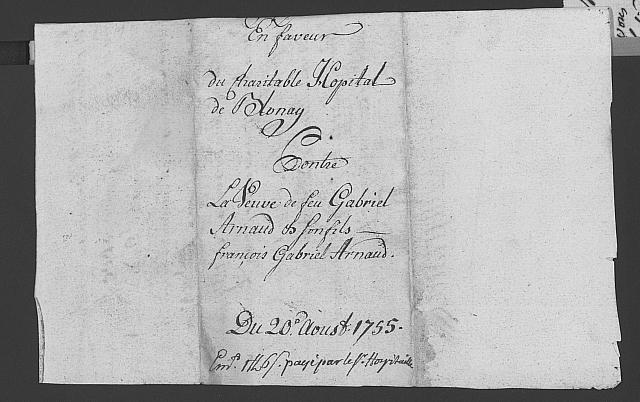 En faveur
du charitable Hopital
de Vevay
Contre
La Veuve de feu Gabriel
Arnaud & son fils
françois Gabriel Arnaud.
Du 20.e Aoust. 1755.
payé par le Sr. Hospitaille